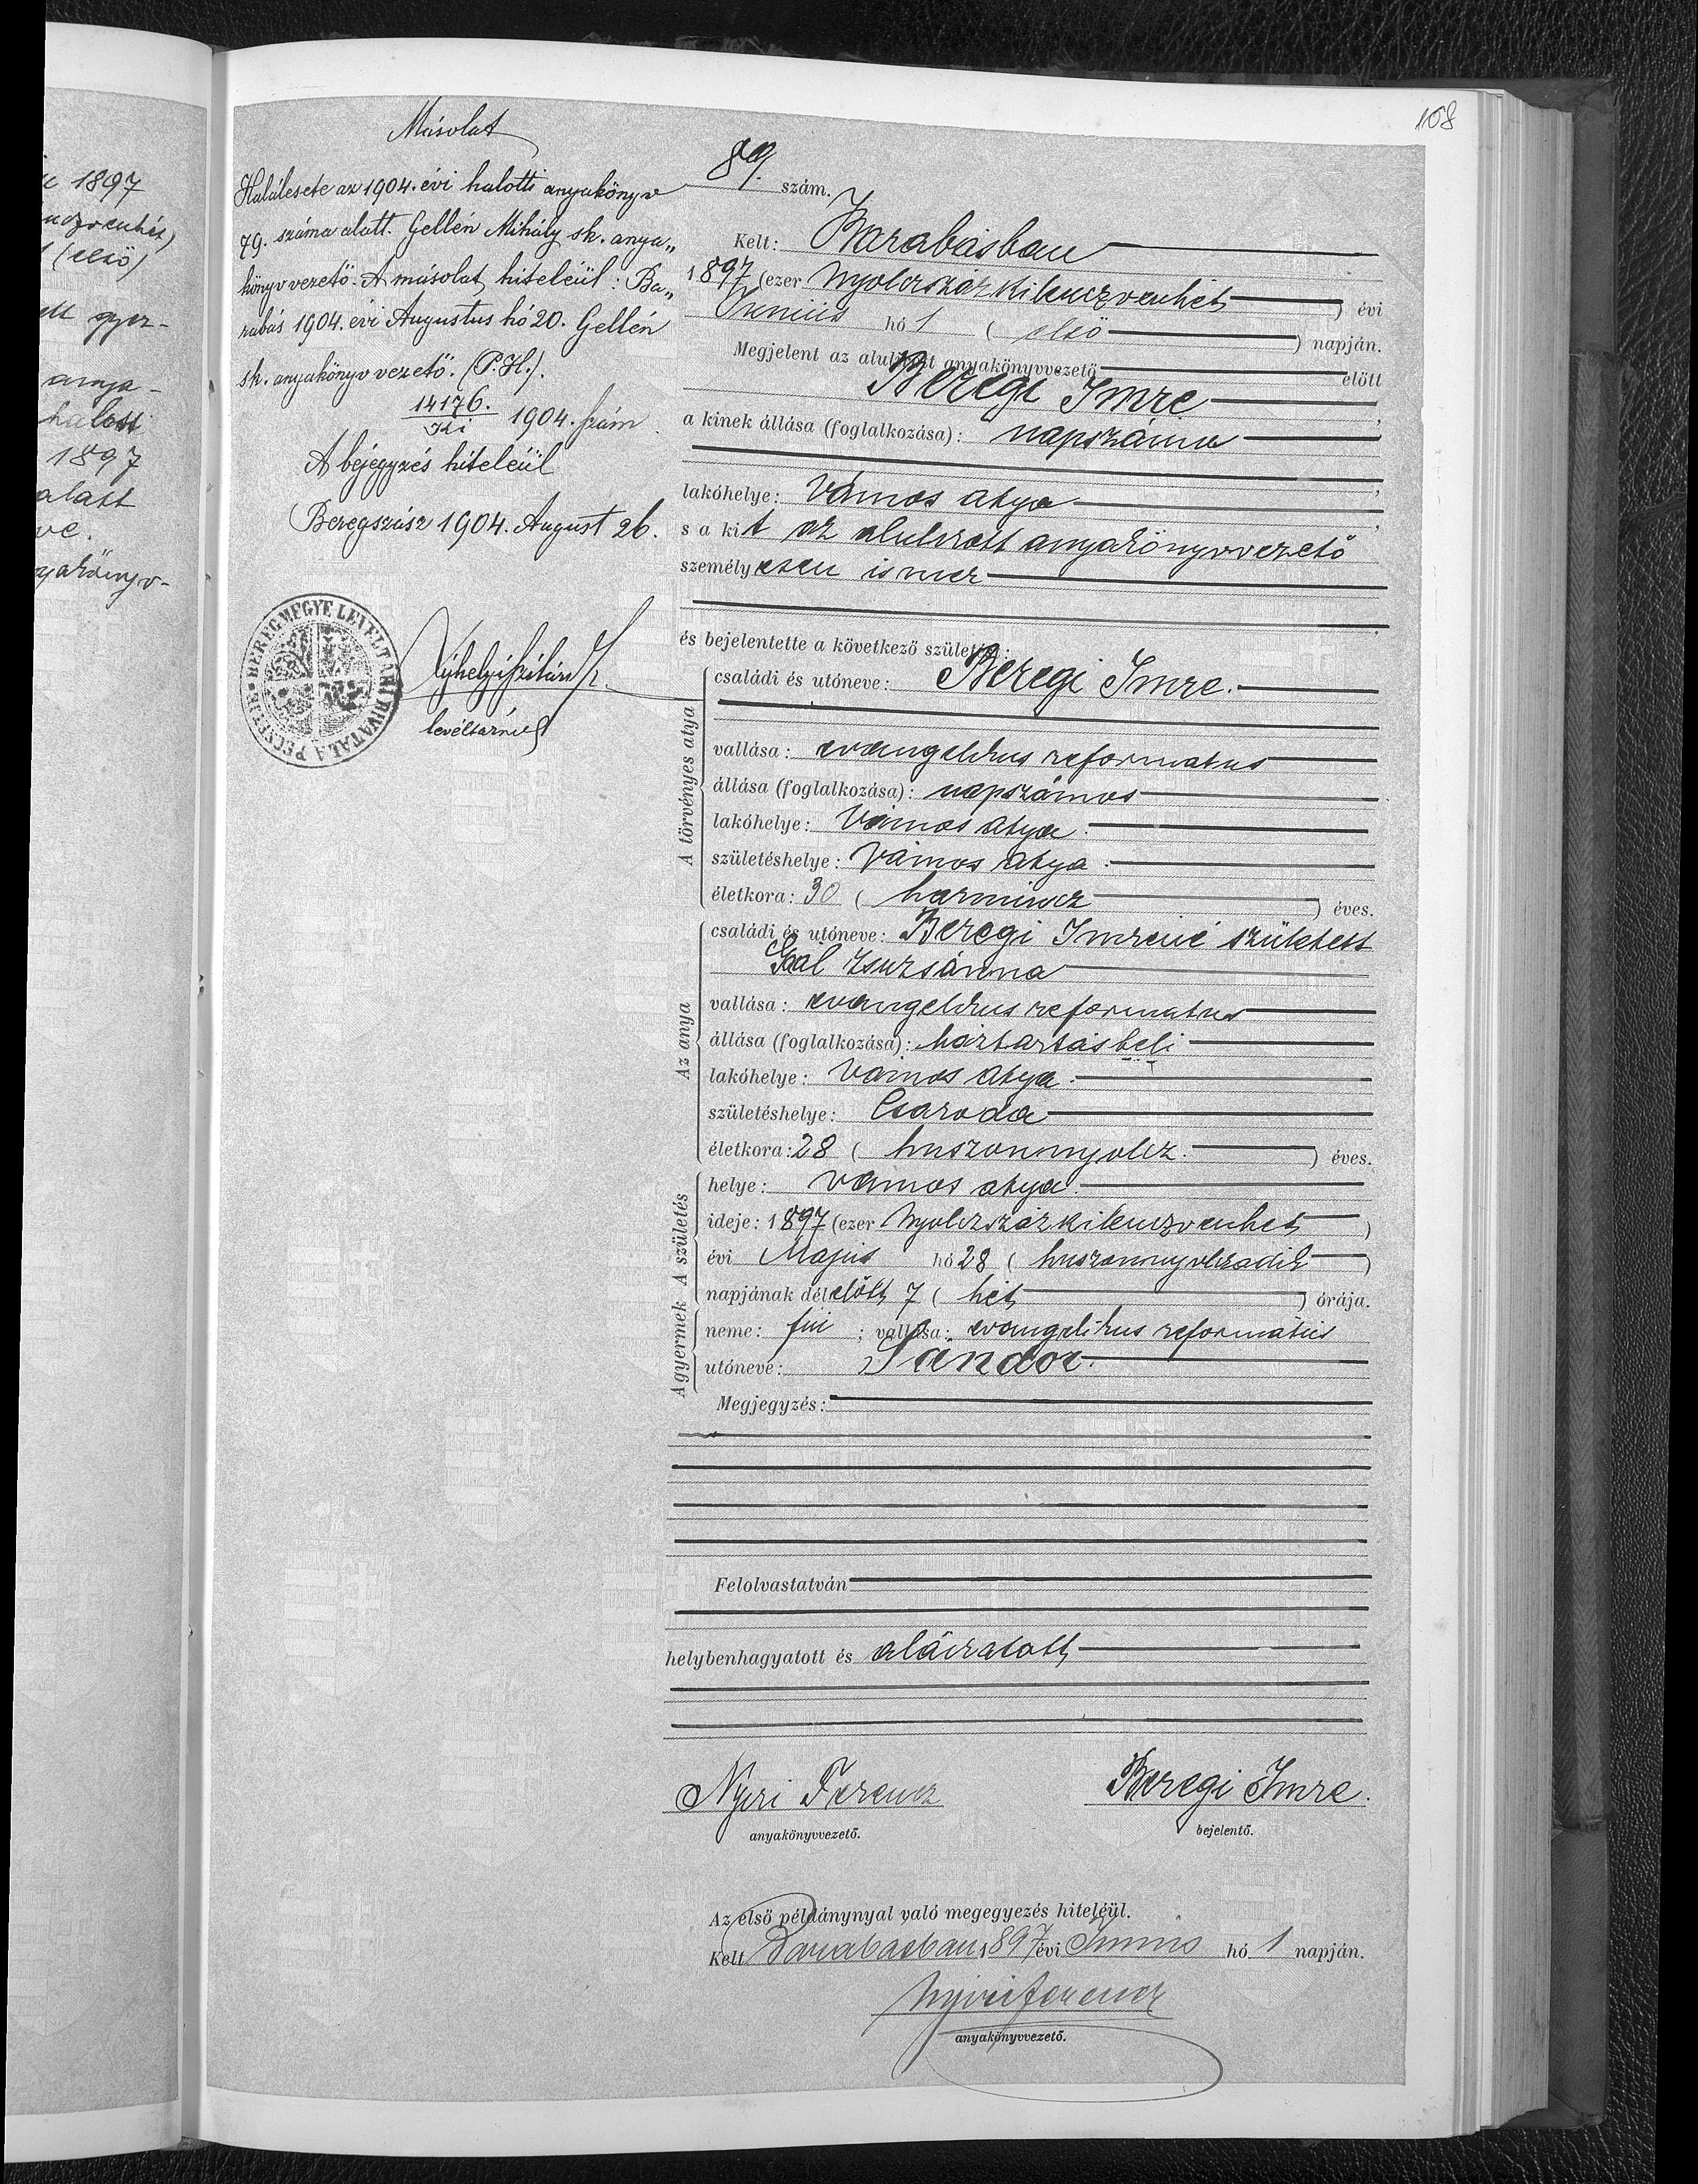 108
ie 1897
1 (első)
ett gyer-
anya-
halott
1897
alatt
ve.
yakönyv-
Másolat
Halálesete az 1904. évi halotti anyakönyv
79. száma alatt. Gellén Mihály sk. anya„
könyvvezető. A másolat hiteléül: Ba„
rabás 1904. évi Augustus hó 20. Gellén
sk. anyakönyvvezető. (P.H.).
14176.
1904. szám.
A bejegyzés hiteléül
Beregszász 1904. August 26.
BEREGMEGYE LEVÉLTÁRI HIVATALA PECSÉTJE
levéltárnok
89. szám.
Kelt: Barabásban
1897 (ezer nyolczszázkilenczvenhét) évi
Június hó 1 (első) napján.
Megjelent az alulírott anyakönyvvezető előtt
Beregi Imre,
a kinek állása (foglalkozása): napszámos
lakóhelye: Vámos atya,
s a kit az alulírott anyakönyvvezető
személyesen ismer
és bejelentette a következő születést:
A törvényes atya
családi és utóneve: Beregi Imre.
vallása: evangelikus reformatus
állása (foglalkozása): napszámos
lakóhelye: Vámos atya.
születéshelye: Vámos atya.
életkora: 30 (harmincz) éves.
Az anya
családi és utóneve: Beregi Imréné született
Gál Zsuzsánna
vallása: evangelikus reformatus
állása (foglalkozása): háztartásbeli
lakóhelye: Vámos atya.
születéshelye: Csaroda
életkora: 28 (huszonnyolcz.) éves.
A születés
helye: Vámos atya.
ideje: 1897 (ezer nyolczszázkilenczvenhét)
évi Május hó 28 (huszonnyolczadik)
napjának délelőtt 7 (hét) órája.
A gyermek
neme: fiú; vallása: evangelikus református
utóneve: Sándor.
Megjegyzés:
Felolvastatván
helybenhagyatott és aláiratott
Nyiri Ferencz
Beregi Imre.
anyakönyvvezető.
bejelentő.
Az első példánynyal való megegyezés hiteléül.
Kelt Barabásban 1897 évi Június hó 1 napján.
Nyiri Ferencz
anyakönyvvezető.